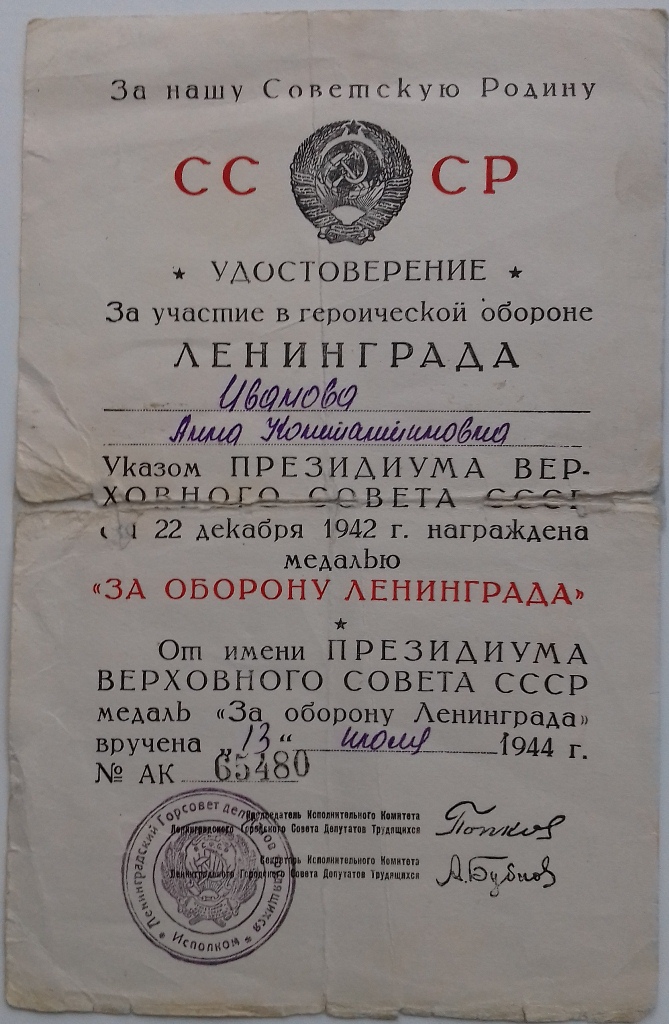 За нашу Советскую Родину
СС СР
★ УДОСТОВЕРЕНИЕ ★
За участие в героической обороне
ЛЕНИНГРАДА
Иванова
Анна Константиновна
Указом ПРЕЗИДИУМА ВЕР-
ХОВНОГО СОВЕТА СССР
22 декабря 1942 г. награждена
медалью
«ЗА ОБОРОНУ ЛЕНИНГРАДА»
★
От имени ПРЕЗИДИУМА
ВЕРХОВНОГО СОВЕТА СССР
медаль «За оборону Ленинграда»
вручена „13“ июля 1944 г.
№ АК 65480
Председатель Исполнительного Комитета
Ленинградского Городского Совета Депутатов Трудящихся
Попков
Секретарь Исполнительного Комитета
Ленинградского Городского Совета Депутатов Трудящихся
А. Бубнов
Ленинградский Горсовет депутатов трудящихся
★ Исполком ★